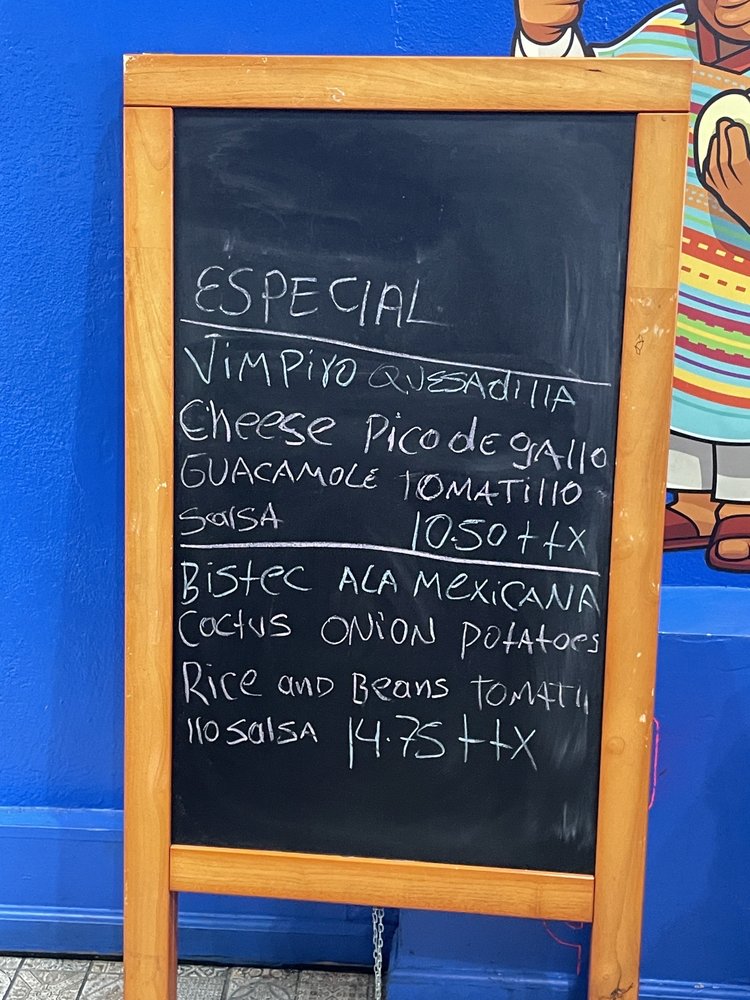 ESPECIAL
VIMPIYO QUESAdillA
Cheese Pico de gAllo
GUACAMOLE TOMATillo
SalsA 10.50 + tx
Bistec ALA MexiCANA
Coctus ONION POtAtoes
Rice and Beans TOMATi
llo SalsA 14.75 + tx